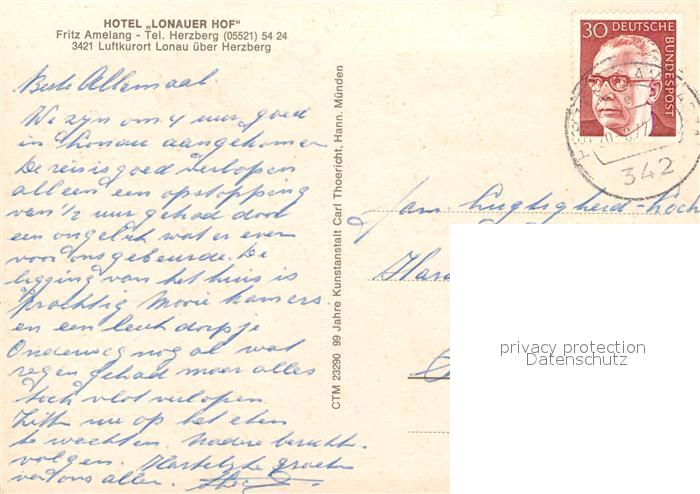 HOTEL „LONAUER HOF"
Fritz Amelang - Tel. Herzberg (05521) 54 24
3421 Luftkurort Lonau über Herzberg
Beste Allemaal
We zijn om 4 uur goed
in Lonau aangekomen
De reis is goed verlopen
alleen een opstopping
van ½ uur gehad door
een ongeluk wat er even
voor ons gebeurde. De
ligging van het huis is
prachtig Mooie kamers
en een leuk dorpje
Onderweg nog al wat
regen gehad maar alles
toch vlot verlopen.
Zitten nu op het eten
te wachten. Nadere bericht
volgen. Hartelijke groeten
van ons allen.
CTM 23290 99 Jahre Kunstanstalt Carl Thoericht, Hann. Münden
30 DEUTSCHE BUNDESPOST
342
Fam.
privacy protection
Datenschutz